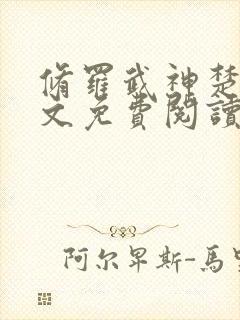 脩羅武神楚
文免費閱讀
阿尔卑斯-馬